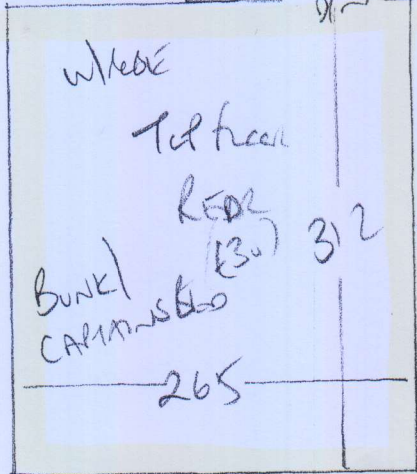 W/ROBE
Top floor
REDR
(30)
312
BUNK/
CAPTAINS BED
265